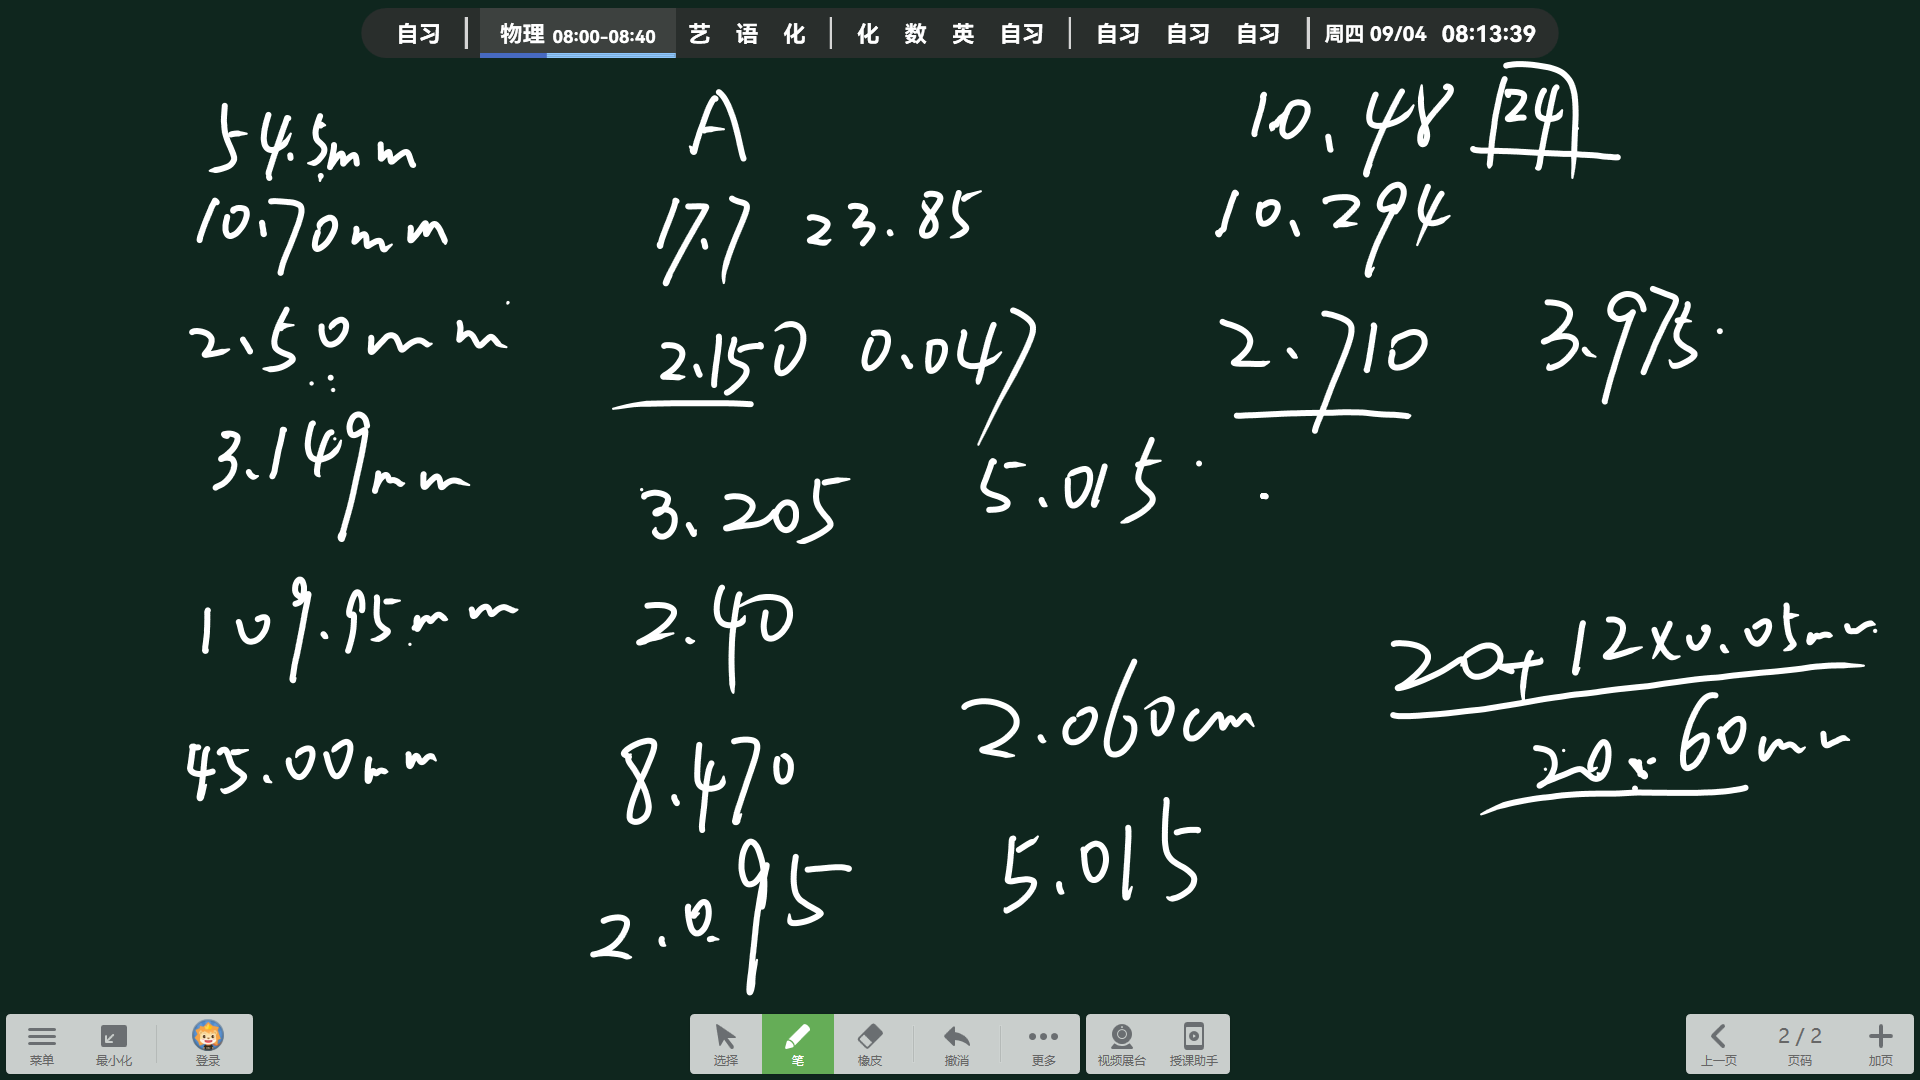 自习 | 物理 08:00-08:40 艺 语 化 | 化 数 英 自习 | 自习 自习 自习 | 周四 09/04 08:13:39
54.5mm
10.70mm
2.50mm
3.149mm
109.95mm
45.00mm
A
17.7 23.85
2.150 0.047
3.205 5.015
2.40
8.470
2.095
2.060cm
5.015
10.48 24
10.294
2.710 3.975
20+12×0.05mm
20.60mm
菜单 最小化 登录
选择 笔 橡皮 撤消 更多 视频展台 授课助手
上一页 2 / 2 页码 加页